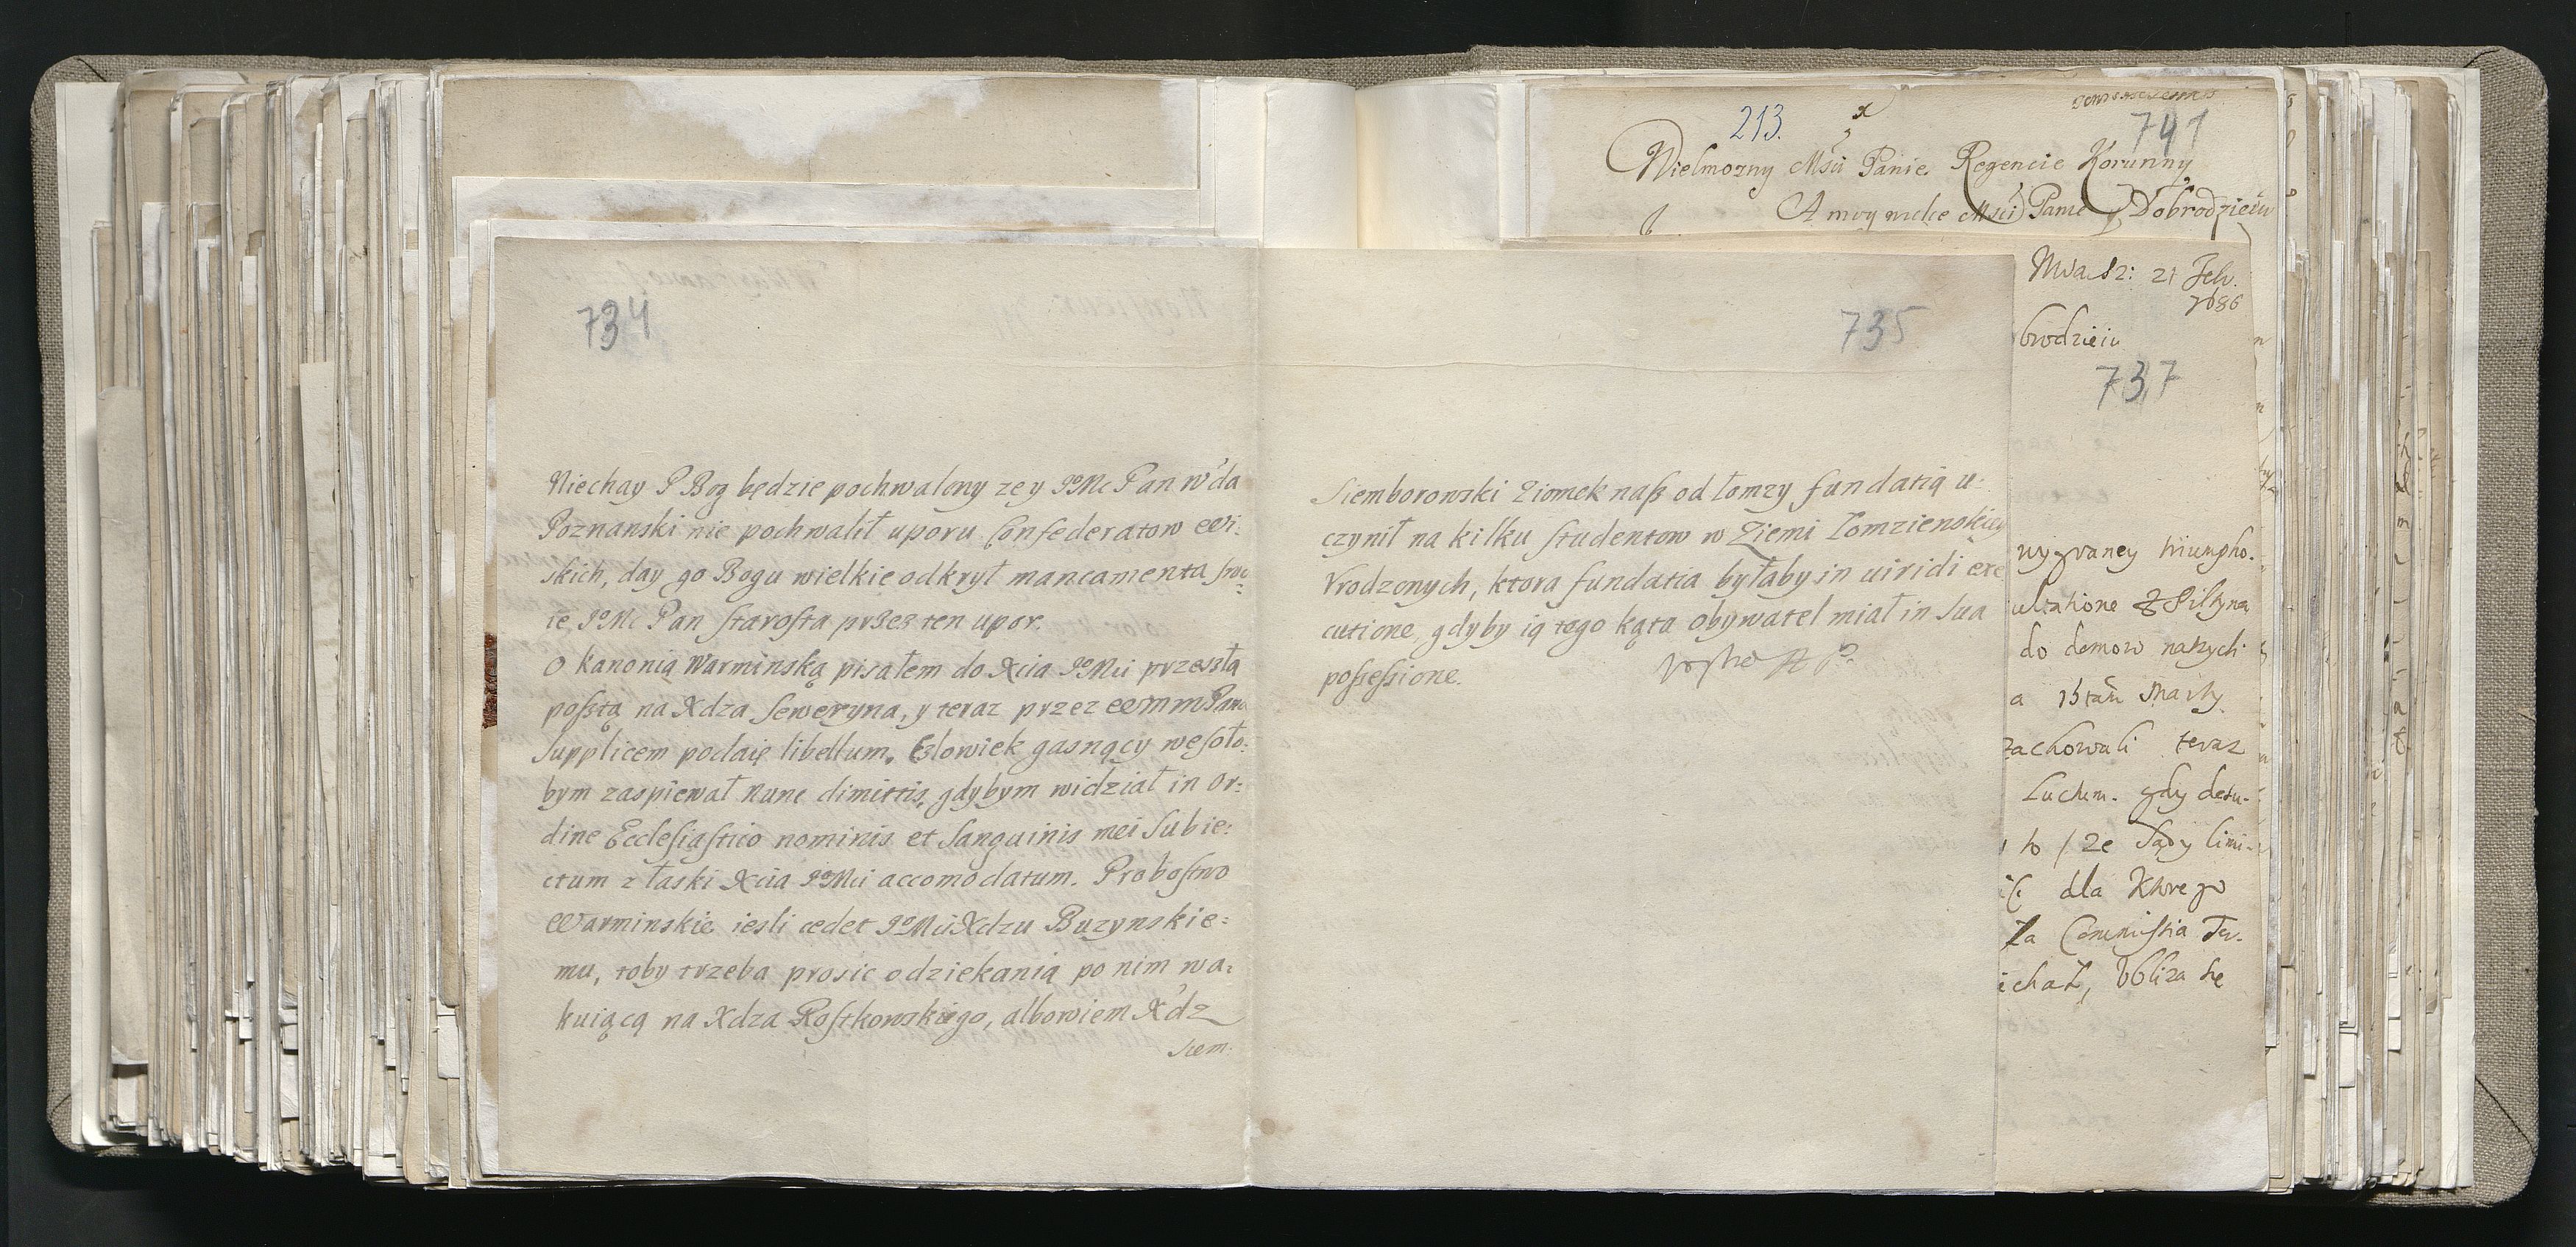 734
Niechay P Bog będzie pochwalony ze y JoMc Pan w'da
Poznanski nie pochwalił uporu Confederatow Wi:
skich, day go Bogu wielkie odkrył mancamenta swo:
ie JoMc Pan Starosta przez ten upor.
O kanonią Warminską pisałem do Xcia JoMci przeszłą
posztą na Xdza Seweryna, y teraz przez WmmPana
Supplicem podaię libellum. Człowiek gasnący wesoło:
bym zaspiewał Nunc dimittis, gdybym widział in Or:
dine Ecclesiastico nominis et Sanguinis mei Subie:
ctum z łaski Xcia JoMci accomodatum. Probostwo
Warminskie iesli cedet JoMci Xdzu Buzynskie:
mu, toby trzeba prosic o dziekanią po nim wa:
kuiącą na Xdza Rostkowskiego, albowiem X'dz
Siem:
735
Siemborowski Ziomek nasz od Łomzy fundatią u:
czynił na kilku Studentow w Ziemi Łomzienskiey
Vrodzonych, ktora fundatia byłaby in uiridi exe
cutione, gdyby ią tego kąta Obywatel miał in Sua
possessione.
213.
741
Wielmozny Msci Panie Regencie Korunny
A moy wielce Msci Panie Dobrodzieiu
21 Feb.
1686
brodzieiu
737
wygraney triumpho.
ultatione z Piltyna
do domow naszych
a
zachowali teraz
Luchem. gdy desu-
to / ze Sądy limi-
dla Ktorego
Za Commissia Ter-
ichał, Vbliza się